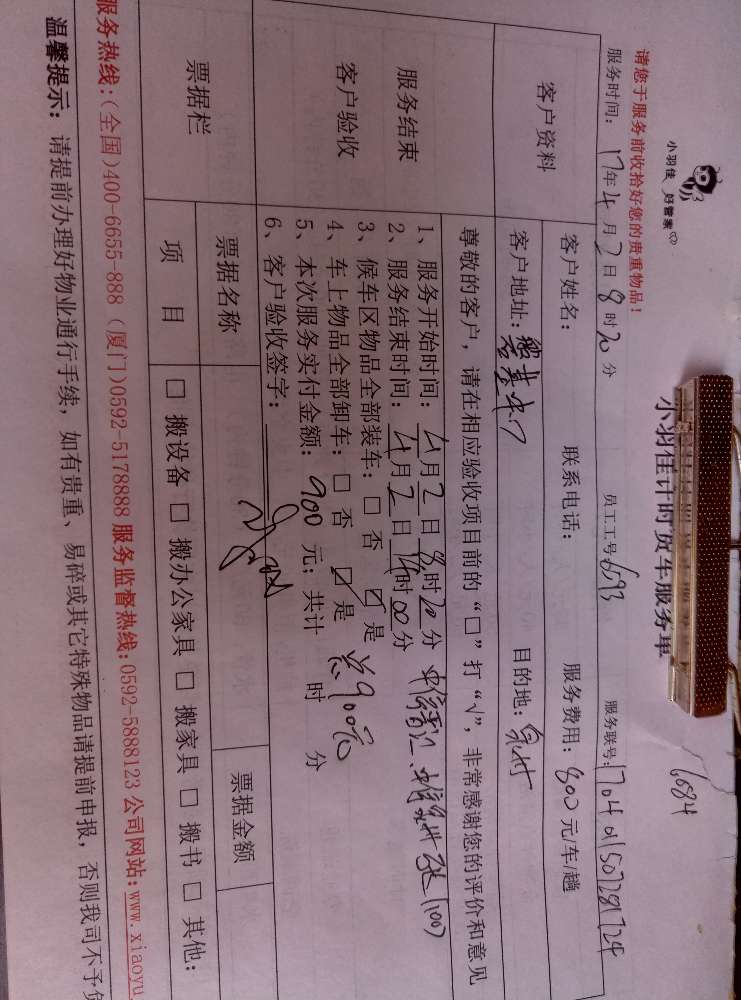 小羽佳 好管家
6684
小羽佳计时货车服务单
请您于服务前收拾好您的贵重物品!
服务时间: 17年4月2日8时20分 员工工号6593 服务联号:
客户资料
客户姓名: 联系电话: 服务费用: 800元/车/趟
客户地址: 目的地:
服务结束
客户验收
尊敬的客户,请在相应验收项目前的“□”打“√”,非常感谢您的评价和意见
1、服务开始时间: 4月2日8时20分
2、服务结束时间: 4月2日14时00分
3、候车区物品全部装车: □ 否 ☑ 是
4、车上物品全部卸车: □ 否 ☑ 是 共900元
5、本次服务实付金额: 900 元; 共计 时 分
6、客户验收签字:
票据栏
票据名称 票据金额
项 目 □ 搬设备 □ 搬办公家具 □ 搬家具 □ 搬书 □ 其他:
服务热线:(全国)400-6655-888 (厦门)0592-5178888 服务监督热线:0592-5888123 公司网站:www.xiaoyu
温馨提示: 请提前办理好物业通行手续,如有贵重、易碎或其它特殊物品请提前申报,否则我司不予